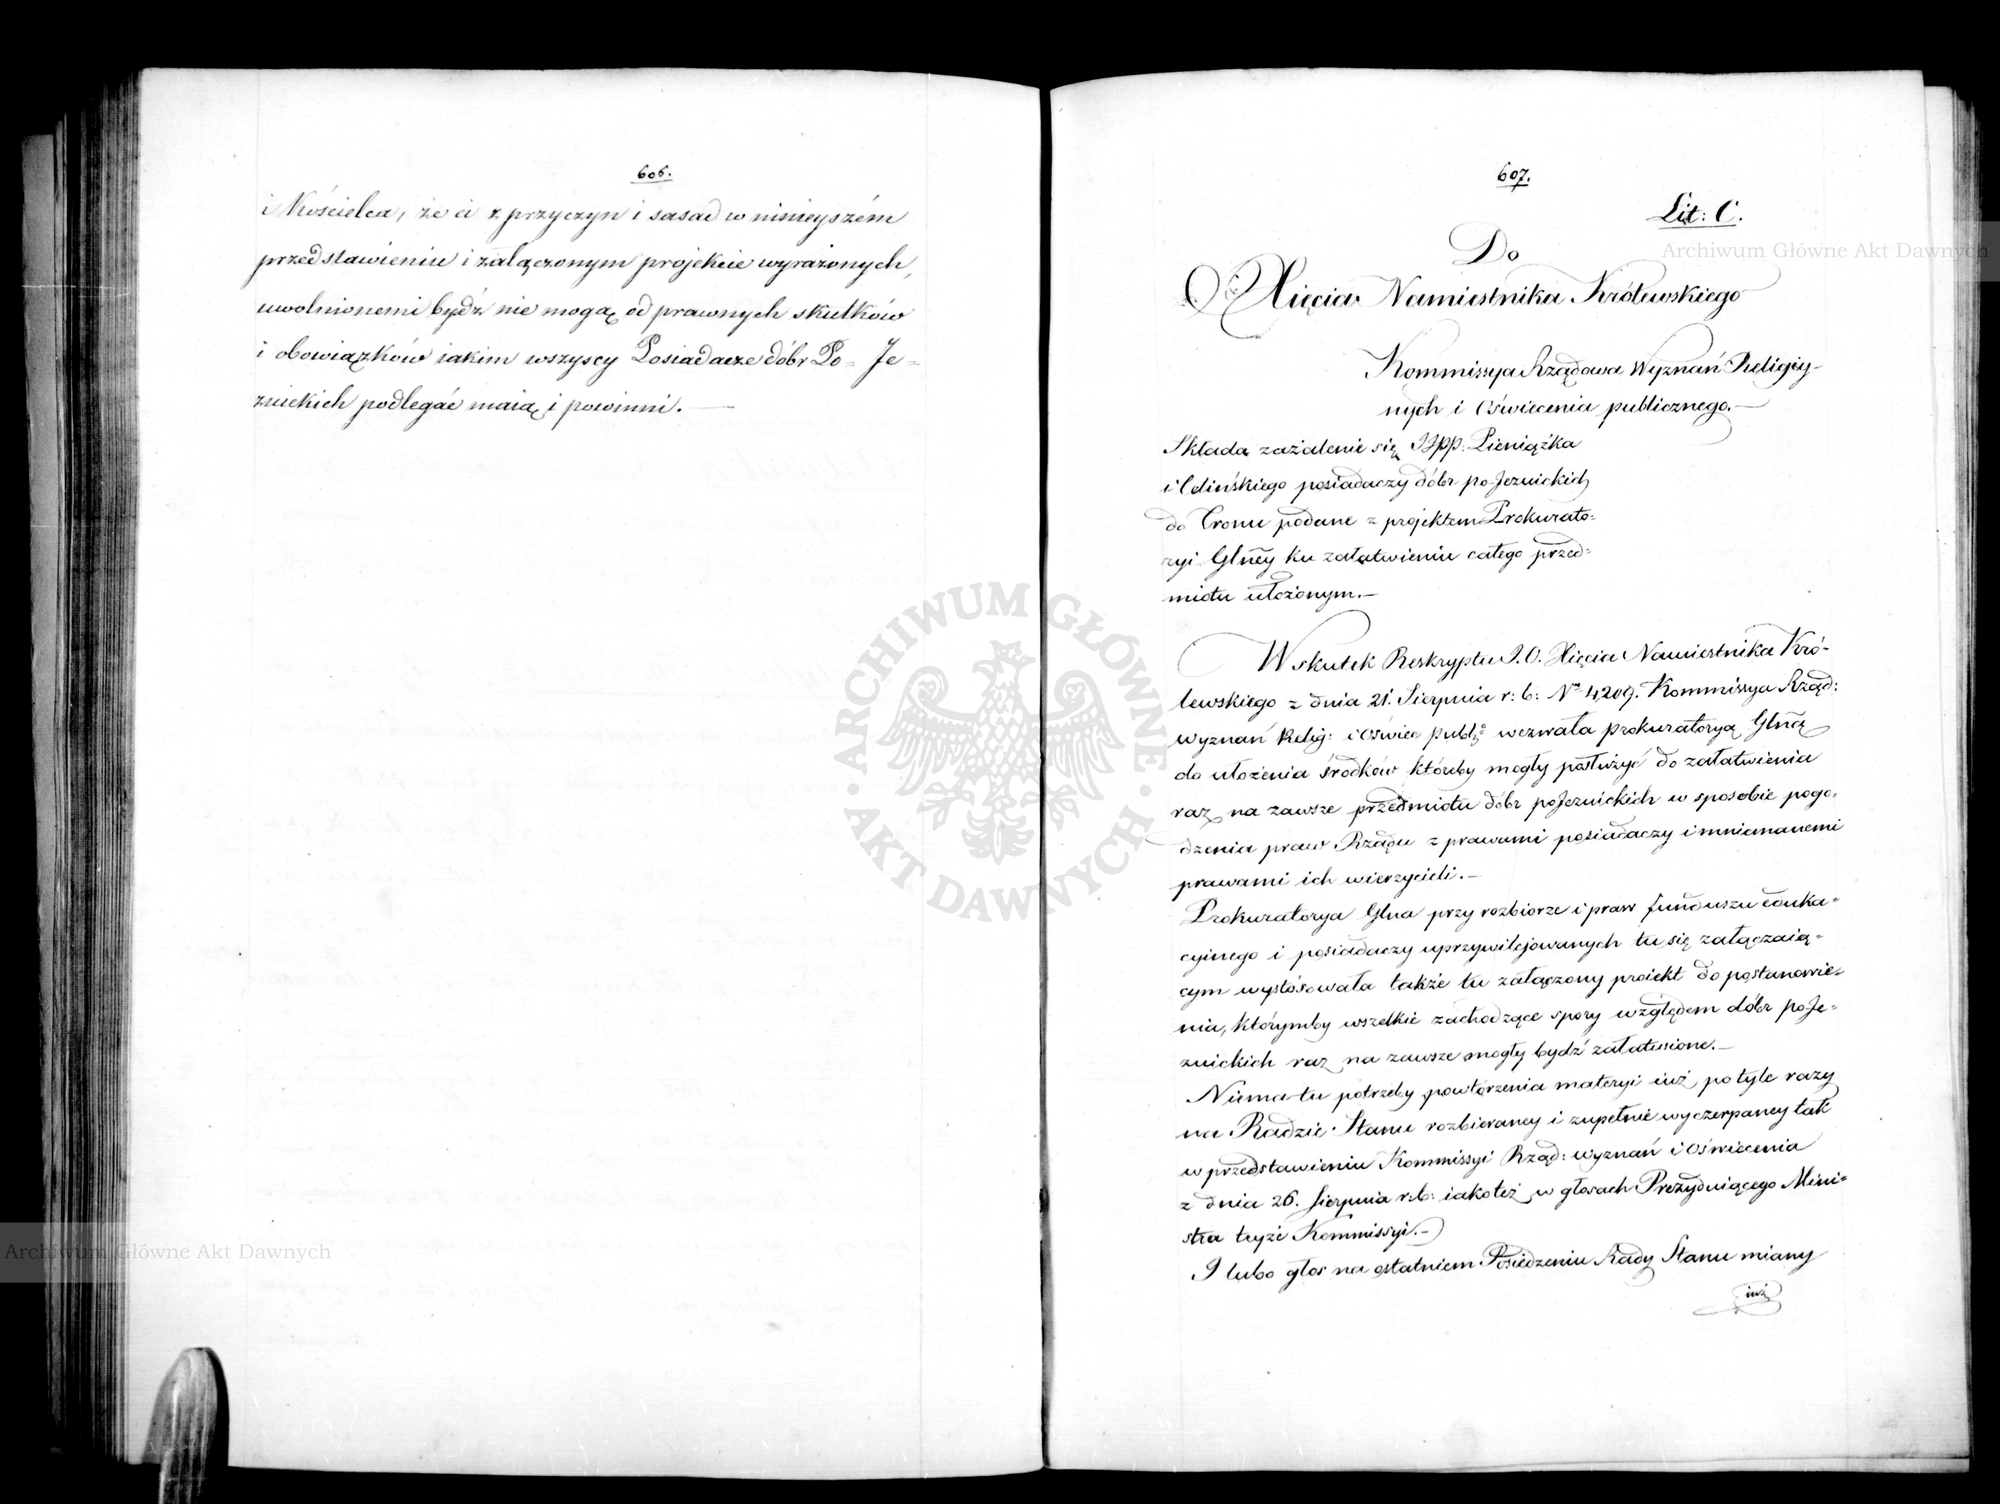 606.
i Kościelca, że ci z przyczyn i zasad w ninieyszém
przedstawieniu i załączonym projekcie wyrażonych,
uwolnionemi bydź nie mogą od prawnych skutków
i obowiązków iakim wszyscy Posiadacze dóbr Po-Je-
zuickich podlegać maią i powinni.—
607.
Lit: C.
Do
Xięcia Namiestnika Królewskiego
Kommissya Rządowa Wyznań Religiy-
nych i Oświecenia publicznego.—
Składa zażalenie się PP: Pieniążka
i Celińskiego posiadaczy dóbr po Jezuickich
do Tronu podane z projektem Prokurato-
ryi Glney ku załatwieniu całego przed-
miotu ułożonym.—
W skutek Reskryptu J.O. Xięcia Namiestnika Kró-
lewskiego z dnia 21. Sierpnia r: b: No 4209. Kommissya Rząd:
wyznań Relig: i Oświec publgo wezwała Prokuratoryą Glną
do ułożenia środków któreby mogły posłużyć do załatwienia
raz na zawsze przedmiotu dóbr po Jezuickich w sposobie pogo-
dzenia praw Rządu z prawami posiadaczy i mniemanemi
prawami ich wierzycieli.—
Prokuratorya Glna przy rozbiorze i praw funduszu eduka-
cyinego i posiadaczy uprzywilejowanych tu się załączaią-
cym wystósowała także tu załączony proiekt do postanowie-
nia, którymby wszelkie zachodzące spory względem dóbr po Je-
zuickich raz na zawsze mogły bydź załatwione.—
Niema tu potrzeby powtórzenia materyi iuż po tyle razy
na Radzie Stanu rozbieraney i zupełnie wyczerpaney tak
w przedstawieniu Kommissyi Rząd: wyznań i Oświecenia
z dnia 26. Sierpnia r: b: iakoteż w głosach Prezyduiącego Mini-
stra teyże Kommissyi.—
I lubo głos na ostatniem Posiedzeniu Rady Stanu miany
iuż
Archiwum Główne Akt Dawnych
Archiwum Główne Akt Dawnych
ARCHIWUM GŁÓWNE · AKT DAWNYCH ·